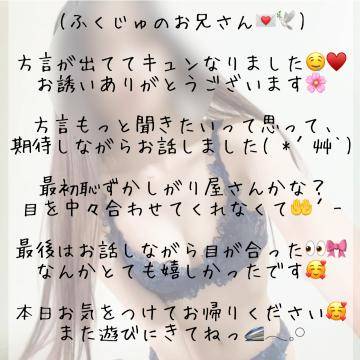 (ふくじゅのお兄さん💌🕊️)
方言が出ててキュンなりました☺️♥️
お誘いありがとうございます🌸
方言もっと聞きたいって思って、
期待しながらお話しました( *´艸`)
最初恥ずかしがり屋さんかな?
目を中々合わせてくれなくて🤲´-
最後はお話しながら目が合った👀🎀
なんかとても嬉しかったです🥰
本日お気をつけてお帰りください🥰
また遊びにきてねっ🚄𓈒𓂂𓏸